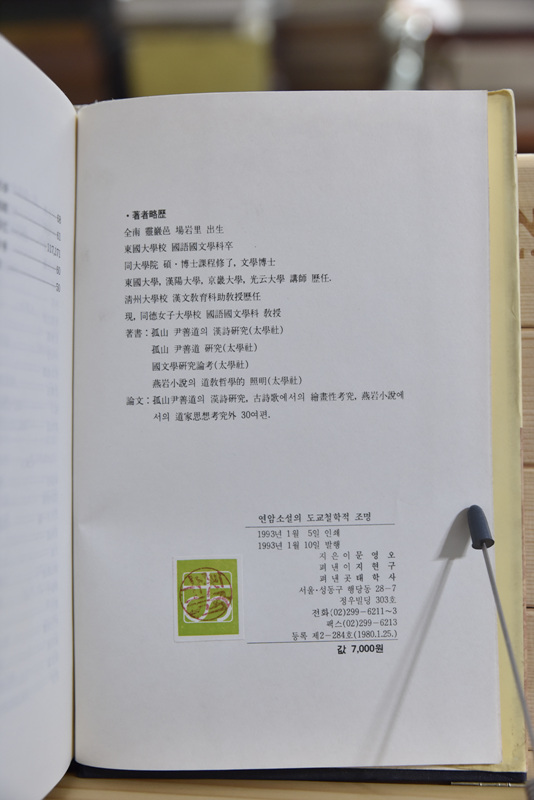 68
61
.117,173
80
50
· 著者略歴
全南 靈巖邑 場岩里 出生
東國大學校 國語國文學科卒
同大學院 碩·博士課程修了, 文學博士
東國大學, 漢陽大學, 京畿大學, 光云大學 講師 歷任.
淸州大學校 漢文敎育科助敎授歷任
現, 同德女子大學校 國語國文學科 敎授
著書 : 孤山 尹善道의 漢詩硏究(太學社)
孤山 尹善道 硏究(太學社)
國文學硏究論考(太學社)
燕岩小說의 道敎哲學的 照明(太學社)
論文 : 孤山尹善道의 漢詩硏究, 古詩歌에서의 繪畫性考究, 燕岩小說에
서의 道家思想考究外 30여편.
연암소설의 도교철학적 조명
1993년 1월 5일 인쇄
1993년 1월 10일 발행
지은이 문 영 오
펴낸이 지 현 구
펴낸곳 태 학 사
서울·성동구 행당동 28-7
정우빌딩 303호
전화(02)299-6211~3
팩스(02)299-6213
등록 제2-284호(1980.1.25.)
값 7,000원